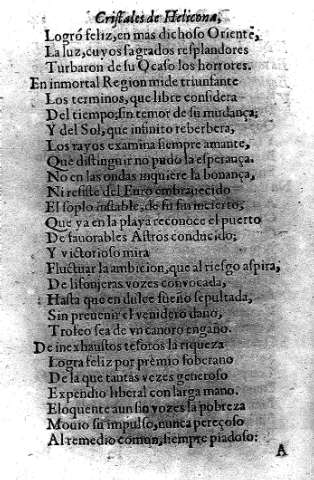 Cristales de Helicona,
Logrò feliz, en mas dichoso Oriente,
La luz, cuyos sagrados resplandores
Turbaron de su Ocaso los horrores.
En inmortal Region mide triunfante
Los terminos, que libre considera
Del tiempo, sin temor de su mudança;
Y del Sol, que infinito reberbera,
Los rayos examina siempre amante,
Que distinguir no pudo la esperança.
No en las ondas inquiere la bonança,
Ni resiste del Euro embrauecido
El soplo instable, de su fin incierto;
Que ya en la playa reconoce el puerto
De fauorables Astros conducido;
Y victorioso mira
Fluctuar la ambicion, que al riesgo aspira,
De lisonjeras vozes convocada,
Hasta que en dulce sueño sepultada,
Sin preuenir el venidero daño,
Trofeo sea de vn canoro engaño.
De inexhaustos tesoros la riqueza
Logra feliz por prèmio soberano
De la que tantas vezes generoso
Expendiò liberal con larga mano.
Eloquente aun sin vozes la pobreza
Mouio su impulso, nunca pereçoso
Al remedio comun, siempre piadoso:
A